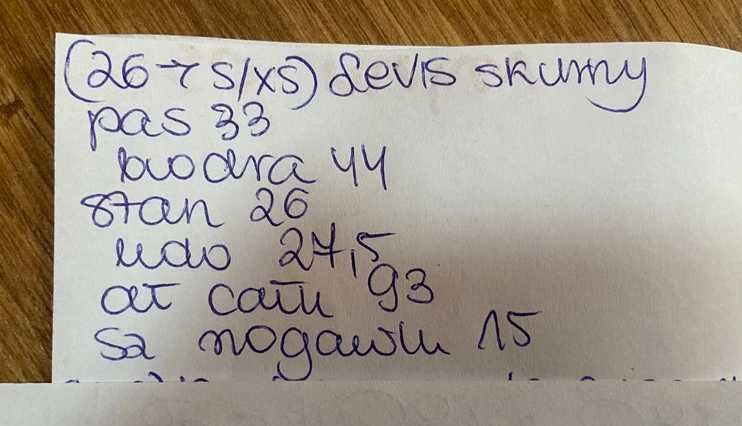 (26 → S/XS) Levis skinny
pas 33
biodra 44
stan 26
udo 27,5
dł całk 93
sz nogawki 15